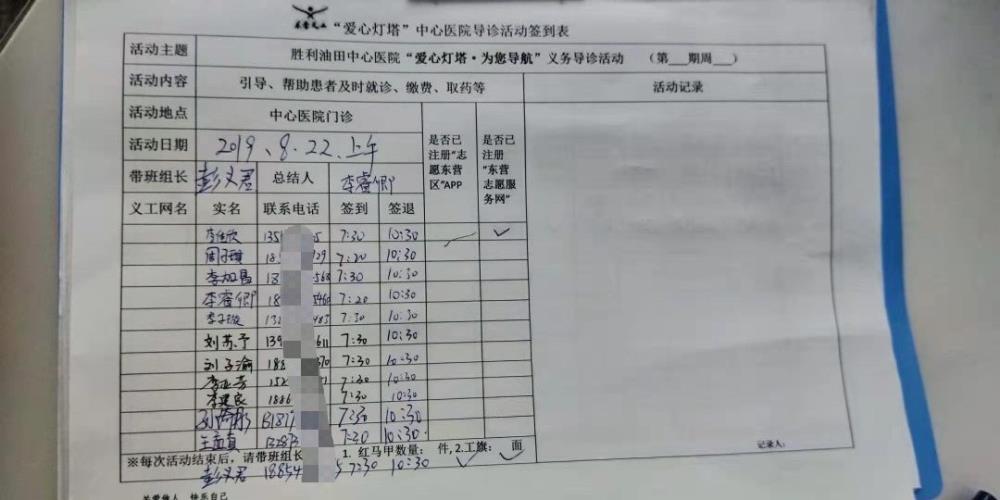 “爱心灯塔”中心医院导诊活动签到表
活动主题 胜利油田中心医院“爱心灯塔·为您导航”义务导诊活动 （第___期周___）
活动内容 引导、帮助患者及时就诊、缴费、取药等 活动记录
活动地点 中心医院门诊 是否已注册“志愿东营区”APP 是否已注册“东营志愿服务网”
活动日期 2019、8.22、上午
带班组长 彭义君 总结人 李睿卿
义工网名 实名 联系电话 签到 签退
李佳欣 135 5 7:30 10:30
周子琪 18 929 7:20 10:30
李旭昌 18 568 7:30 10:30
李睿卿 18 5460 7:20 10:30
李子璇 132 483 7:30 10:30
刘苏予 139 611 7:30 10:30
刘子渝 188 370 7:30 10:30
152 7:30 10:30
李建良 1886 7:30 10:30
7:30 10:30
王孟真 132873 7:30 10:30
※每次活动结束后，请带班组长 1. 红马甲数量： 件, 2.工旗： 面
彭义君 18854 5 7:30 10:30
记录人：
关爱他人 快乐自己